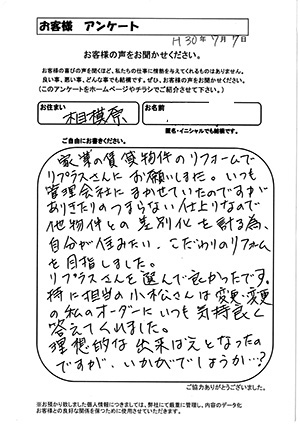 お客様 アンケート
H30年7月7日
お客様の声をお聞かせください。
お客様の喜びの声を聞くほど、私たちの仕事に情熱を与えてくれるものはありません。
良い事、悪い事、どんな事でも結構です。ぜひ、お客様の声をお聞かせください。
(このアンケートをホームページやチラシでご紹介させて下さい。)
お住まい
相模原
お名前
匿名・イニシャルでも結構です。
ご自由にお書きください。
家業の賃貸物件のリフォームで
リプラスさんにお願いしました。いつも
管理会社にまかせていたのですが
ありきたりのつまらない仕上りなので
他物件との差別化を計る為、
自分が住みたい、こだわりのリフォーム
を目指しました。
リプラスさんを選んで良かったです。
特に担当の小松さんは変更・変更
の私のオーダーにいつも気持良く
答えてくれました。
理想的な出来ばえとなったの
ですが、いかがでしょうか…?
ご協力ありがとうございました。
※お預かり致しました個人情報につきましては、弊社にて厳重に管理し、内容のデータ化
お客様との良好な関係を保つために使用させていただきます。